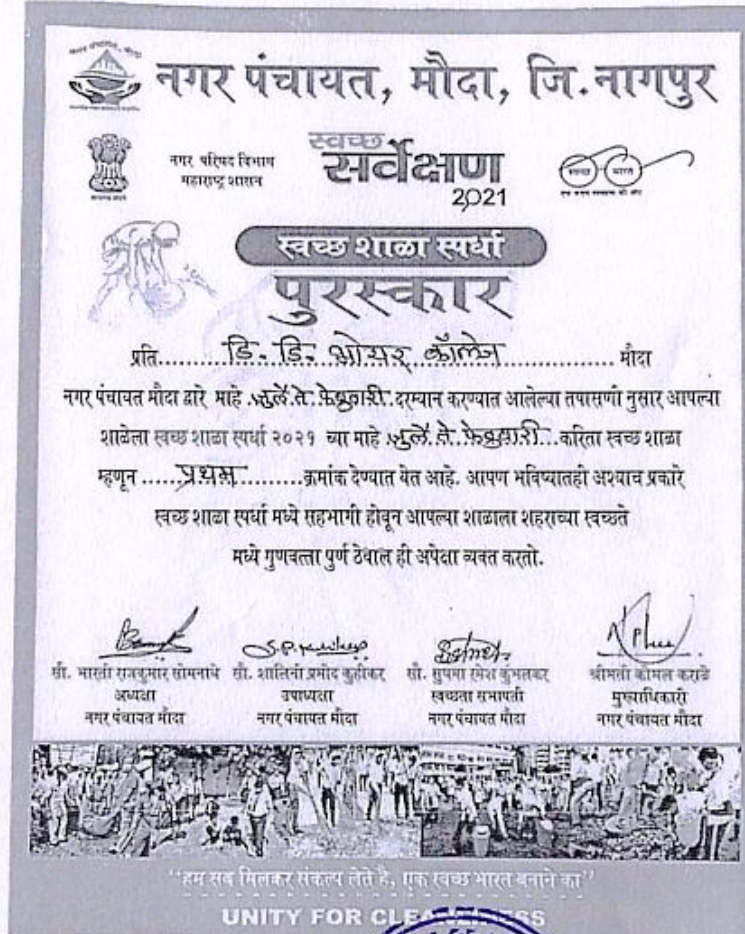 नगर पंचायत, मौदा, जि.नागपुर
नगर परिषद विभाग
महाराष्ट्र शासन
स्वच्छ
सर्वेक्षण
2021
स्वच्छ भारत
एक कदम स्वच्छता की ओर
स्वच्छ शाळा स्पर्धा
पुरस्कार
प्रति.......डि. डि. भोयर कॉलेज.......मौदा
नगर पंचायत मौदा द्वारे माहे .जुलै ते फेब्रुवारी. दरम्यान करण्यात आलेल्या तपासणी नुसार आपल्या
शाळेला स्वच्छ शाळा स्पर्धा २०२१ च्या माहे .जुलै ते फेब्रुवारी...करिता स्वच्छ शाळा
म्हणून ......प्रथम.........क्रमांक देण्यात येत आहे. आपण भविष्यातही अश्याच प्रकारे
स्वच्छ शाळा स्पर्धा मध्ये सहभागी होवून आपल्या शाळाला शहराच्या स्वच्छते
मध्ये गुणवत्ता पुर्ण ठेवाल ही अपेक्षा व्यक्त करतो.
सौ. भारती राजकुमार सोमनाथे सौ. शालिनी प्रमोद कुहीकर सौ. सुषमा रमेश कुंभलकर श्रीमती कोमल कराळे
अध्यक्षा उपाध्यक्षा स्वच्छता सभापती मुख्याधिकारी
नगर पंचायत मौदा नगर पंचायत मौदा नगर पंचायत मौदा नगर पंचायत मौदा
"हम सब मिलकर संकल्प लेते है, एक स्वच्छ भारत बनाने का"
UNITY FOR CLEANLINESS